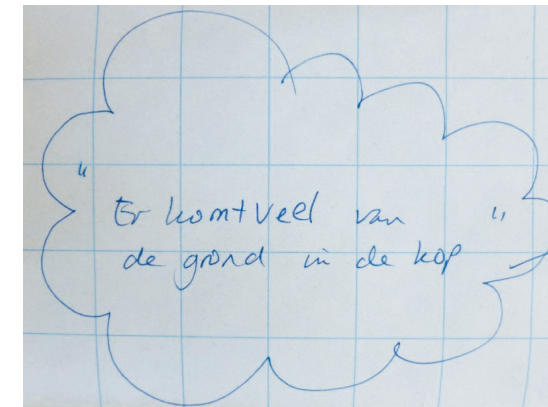 " Er komt veel van "
de grond in de kop